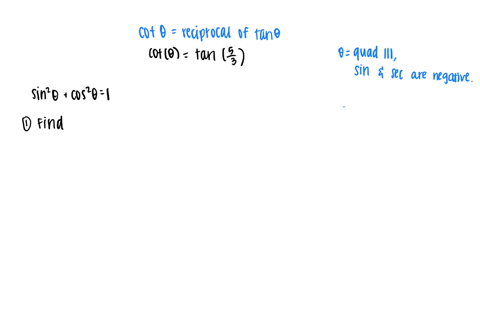 cot θ = reciprocal of tanθ
cot(θ) = tan (5/3)
θ = quad III,
sin & sec are negative.
sin²θ + cos²θ = 1
① Find